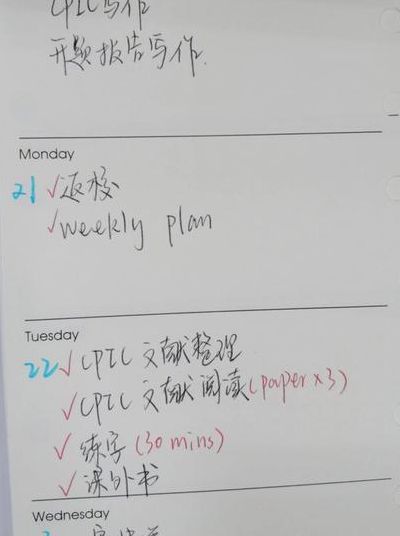 CPIC写作
开题报告写作.
Monday
21 √返校
√weekly plan
Tuesday
22 √CPIC 文献整理
√CPIC 文献阅读(paper×3)
√ 练字(30 mins)
√ 课外书
Wednesday